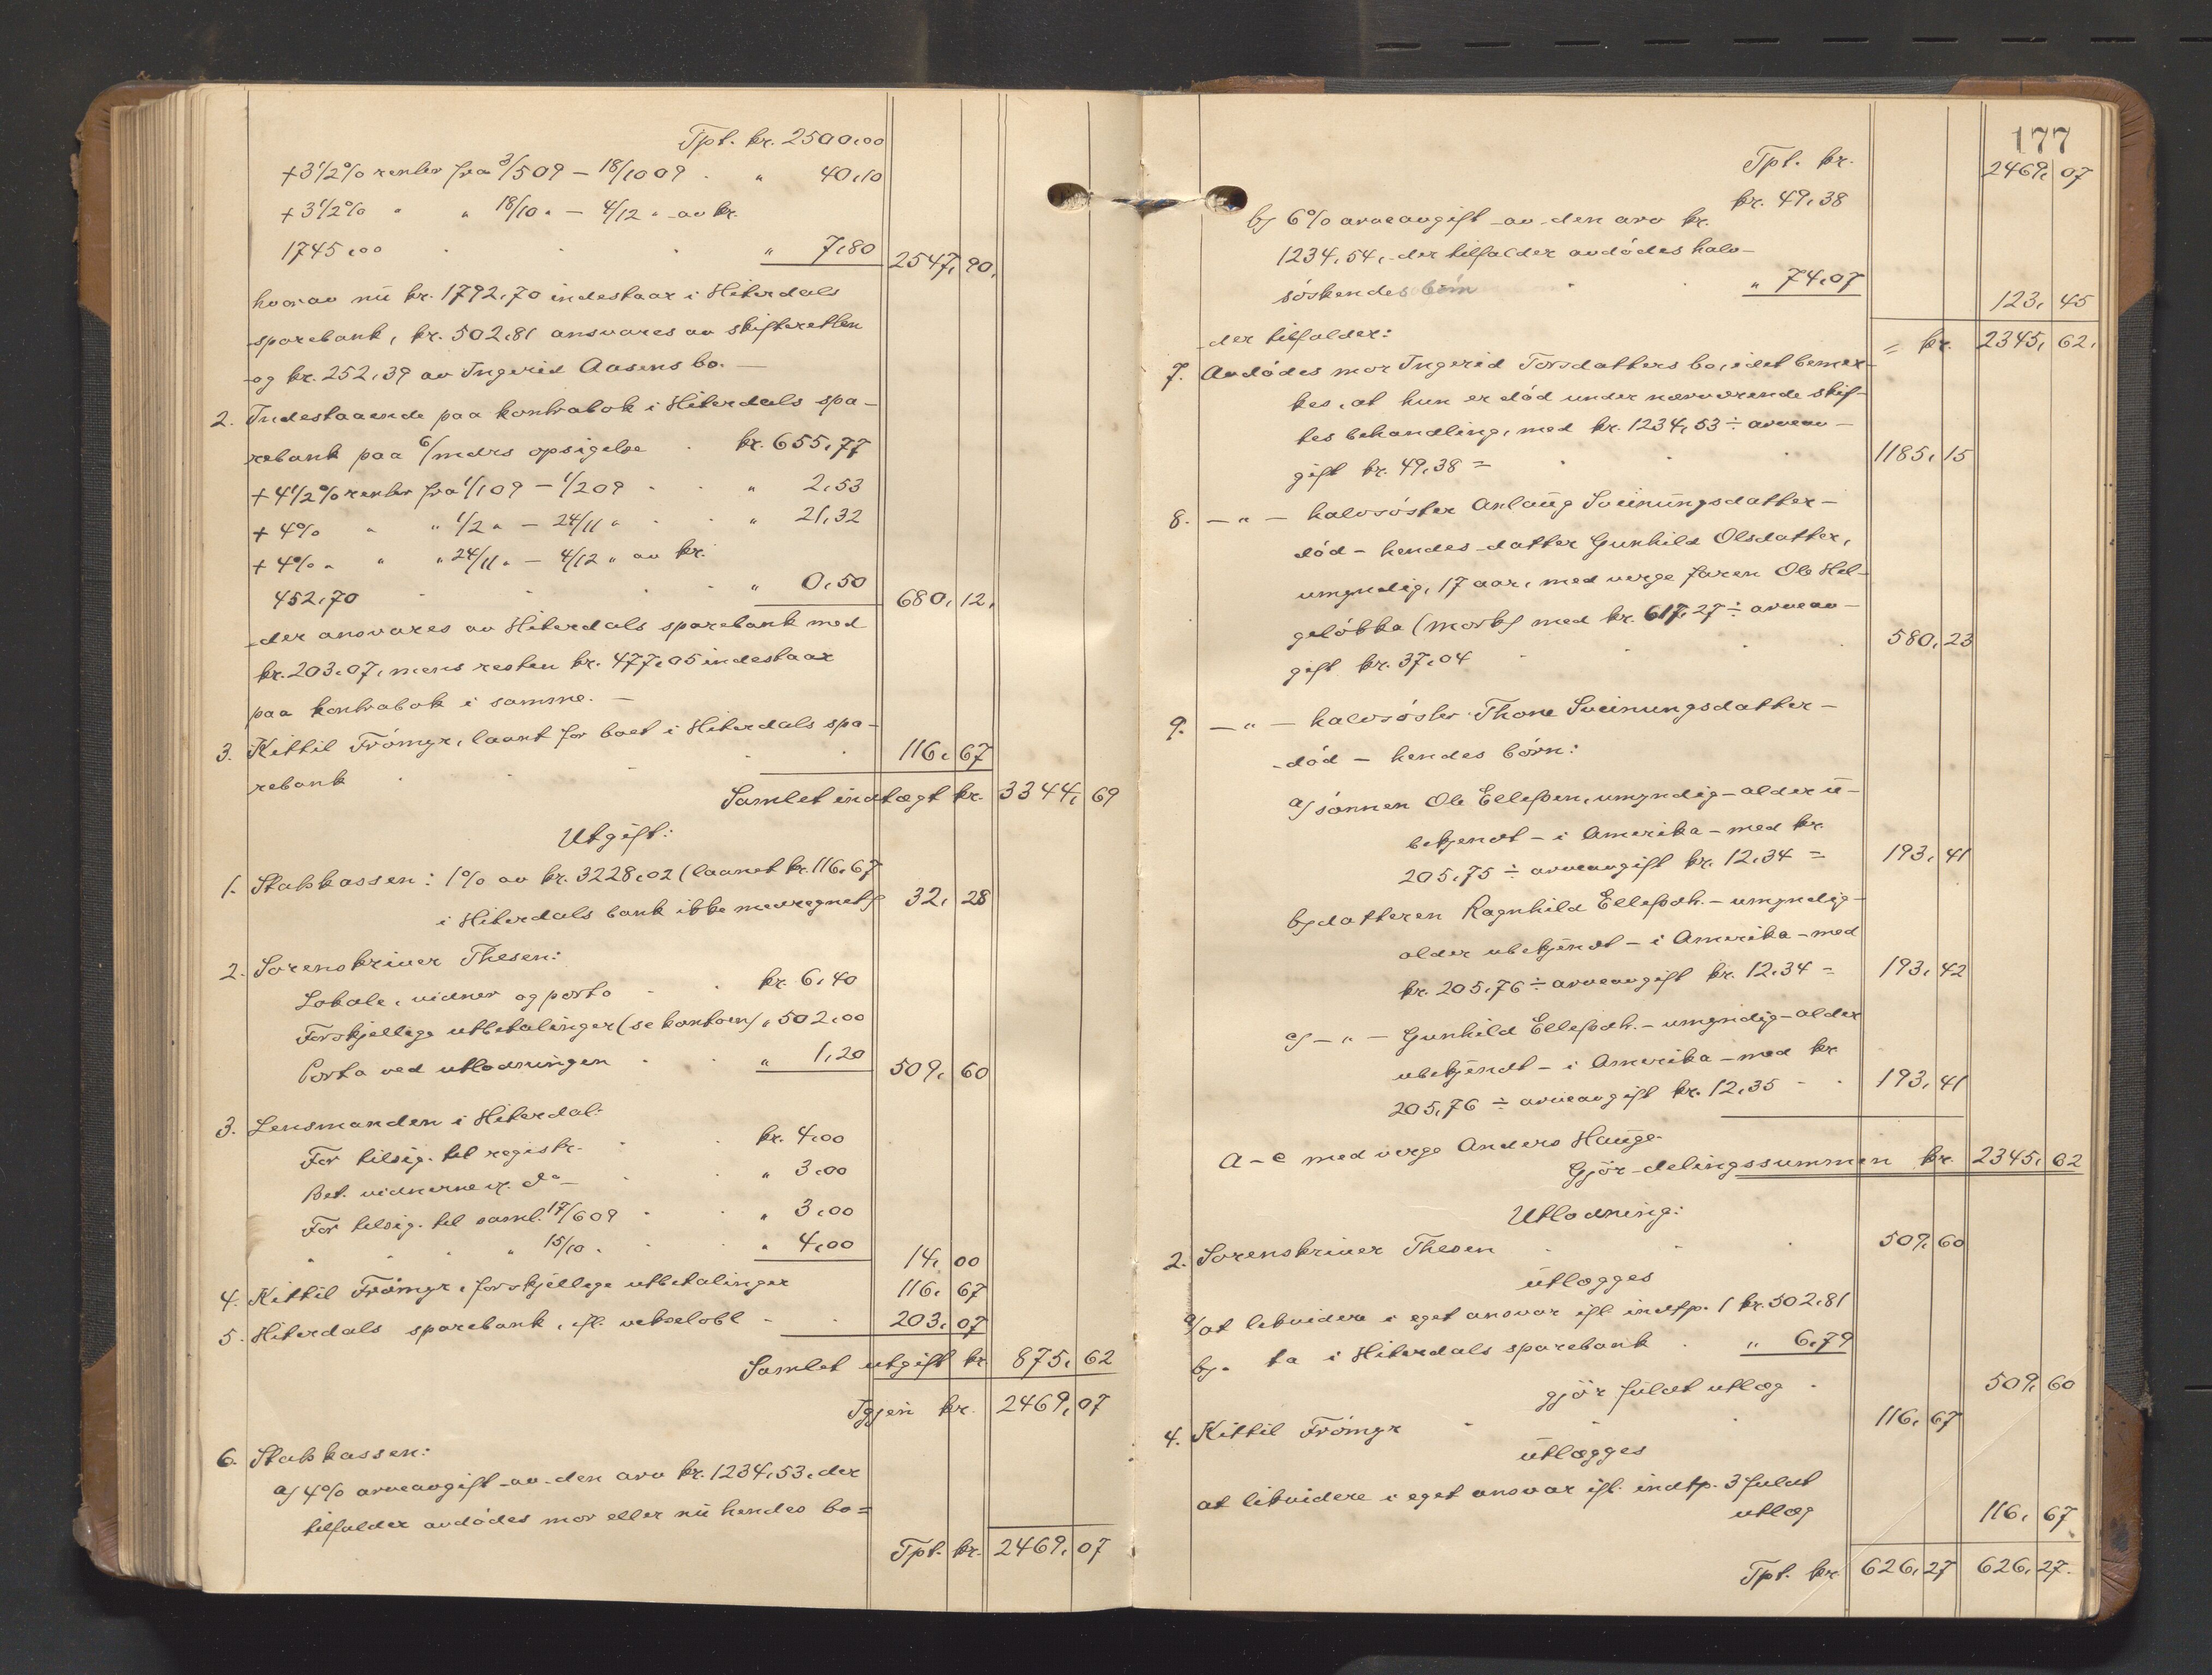 Tpt. kr. 2500,00
+ 3 1/2 % renter fra 3/5 09 – 18/10 09 . " 40,10
+ 3 1/2 % " " 18/10 " – 4/12 " av kr.
1745,00 . . . " 7,80 2547,90,
hvorav nu kr. 1792,70 indestaar i Hiterdals
sparebank, kr. 502,81 ansvares av skifteretten
og kr. 252,39 av Ingerid Aasens bo. —
2. Indestaaende paa kontrabok i Hiterdals spa-
rebank paa 6/mdrs opsigelse . kr. 655,77
+ 4 1/2 % renter fra 1/1 09 – 1/2 09 . . " 2,53
+ 4 % " " 1/2 " – 24/11 " . . " 21,32
+ 4 % " " " 24/11 " – 4/12 " av kr.
452,70 . . . " 0,50 680,12,
der ansvares av Hiterdals sparebank med
kr. 203,07, mens resten kr. 477,05 indestaar
paa kontrabok i samme. —
3. Kittil Frömyr, laant for boet i Hiterdals spa-
rebank . . . . 116,67
Samlet indtægt kr. 3344,69
Utgift:
1. Statskassen: 1 % av kr. 3228,02 (laanet kr. 116,67
i Hiterdals bank ikke medregnet) 32,28
2. Sorenskriver Thesen:
Lokale, vidner og porto . . kr. 6,40
Forskjellige utbetalinger (se kontoen) " 502,00
Porto ved utlodningen . . " 1,20 509,60
3. Lensmanden i Hiterdal:
For tilsig. til registr. . . kr. 4,00
Bet. vidnerne v. do – . " 3,00
For tilsig. til saml. 17/6 09 . . " 3,00
" " " " 15/10 " . . " 4,00 14,00
4. Kittil Frömyr, forskjellige utbetalinger 116,67
5. Hiterdals sparebank, ifl. vekselobl. . . 203,07
Samlet utgift kr. 875,62
Igjen kr. 2469,07
6. Statskassen:
a) 4 % arveavgift av den arv kr. 1234,53, der
tilfalder avdödes mor eller nu hendes bo =
Tpt. kr. 2469,07
177
Tpt. kr. 2469,07
kr. 49,38
b) 6 % arveavgift av den arv kr.
1234,54, der tilfalder avdödes halv-
söskendes börn . " 74,07 123,45
= kr. 2345,62,
der tilfalder:
7. Avdödes mor Ingerid Torsdatters bo, idet bemer-
kes, at hun er död under nærværende skif-
tes behandling, med kr. 1234,53 ÷ arveav-
gift kr. 49,38 = . . . 1185,15
8. — " — halvsöster Anlaug Sveinungsdatter –
död – hendes datter Gunhild Olsdatter,
umyndig, 17 aar, med verge faren Ole Hel-
gelökka (mork) med kr. 617,27 ÷ arveav-
gift kr. 37,04 . . . 580,23
9. — " — halvsöster Thone Sveinungsdatter –
död – hendes börn:
a) sönnen Ole Ellefsen, umyndig – alder u-
bekjendt – i Amerika – med kr.
205,75 ÷ arveavgift kr. 12,34 = 193,41
b) datteren Ragnhild Ellefsdh. – umyndig –
alder ubekjendt – i Amerika – med
kr. 205,76 ÷ arveavgift kr. 12,34 = 193,42
c) — " — Gunhild Ellefsdh. – umyndig – alder
ubekjendt – i Amerika – med kr.
205,76 ÷ arveavgift kr. 12,35 . . 193,41
a – c med verge Anders Hauge.
Gjör delingssummen kr. 2345,62
Utlodning:
2. Sorenskriver Thesen . . . 509,60
utlægges
a) at likvidere i eget ansvar ifl. indtp. 1 kr. 502,81
b) " ta i Hiterdals sparebank . " 6,79
gjör fuldt utlæg . 509,60
4. Kittil Frömyr . . . 116,67
utlægges
at likvidere i eget ansvar ifl. indtp. 3 fuldt
utlæg 116,67
Tpt. kr. 626,27 626,27.